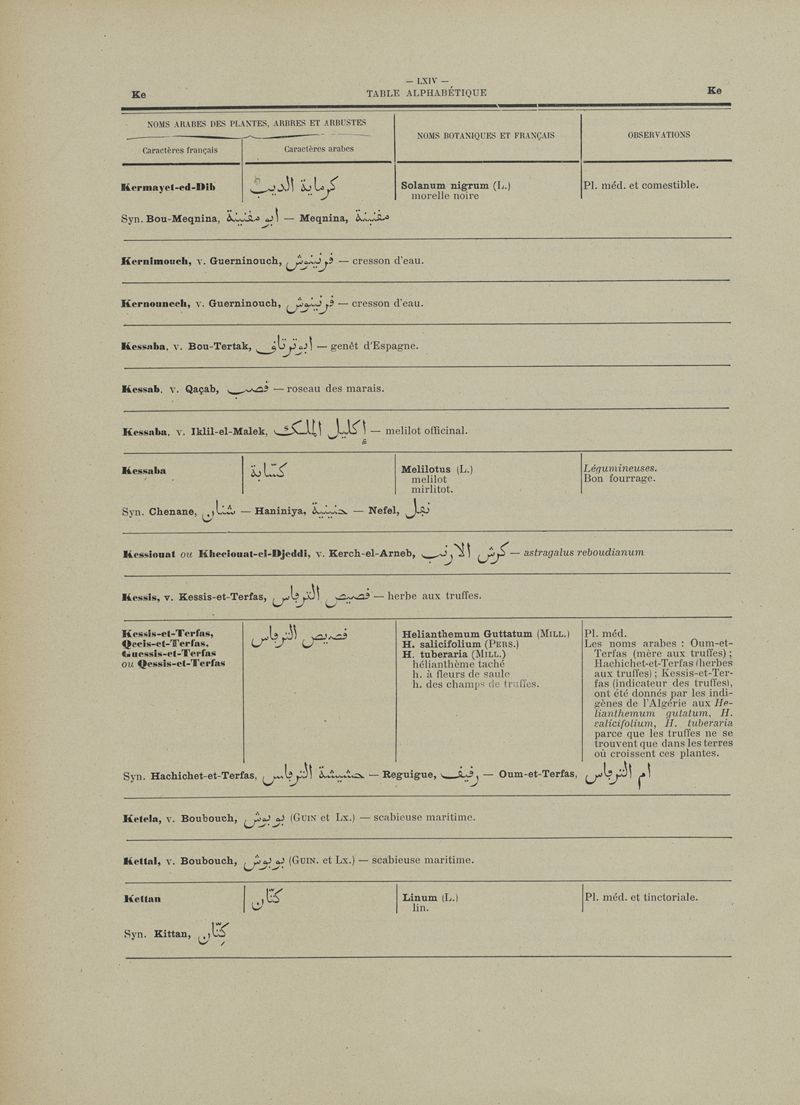 — LXIV —
Ke TABLE ALPHABÉTIQUE Ke
NOMS ARABES DES PLANTES, ARBRES ET ARBUSTES
NOMS BOTANIQUES ET FRANÇAIS
OBSERVATIONS
Caractères français
Caractères arabes
Kermayet-ed-Dib
كرماية الديب
Solanum nigrum (L.)
morelle noire
Pl. méd. et comestible.
Syn. Bou-Meqnina, ابو مقنينة — Meqnina, مقنينة
Kernimouch, v. Guerninouch, ڧرنينوش — cresson d'eau.
Kernounech, v. Guerninouch, ڧرنينوش — cresson d'eau.
Kessaba, v. Bou-Tertak, — genêt d'Espagne.
Kessab, v. Qaçab, — roseau des marais.
Kessaba, v. Iklil-el-Malek, اكليل الملك — melilot officinal.
Kessaba
كسّابة
Melilotus (L.)
melilot
mirlitot.
Légumineuses.
Bon fourrage.
Syn. Chenane, شنان — Haniniya, حنينية — Nefel, نفل
Kessiouat ou Kheciouat-el-Djeddi, v. Kerch-el-Arneb, كرش الارنب — astragalus reboudianum
Kessis, v. Kessis-et-Terfas, فصيص الترفاس — herbe aux truffes.
Kessis-et-Terfas,
Qecis-et-Terfas,
Guessis-et-Terfas
ou Qessis-et-Terfas
فصيص الترفاس
Helianthemum Guttatum (MILL.)
H. salicifolium (PERS.)
H. tuberaria (MILL.)
hélianthème taché
h. à fleurs de saule
h. des champs de truffes.
Pl. méd.
Les noms arabes : Oum-et-
Terfas (mère aux truffes) ;
Hachichet-et-Terfas (herbes
aux truffes) ; Kessis-et-Ter-
fas (indicateur des truffes),
ont été donnés par les indi-
gènes de l'Algérie aux He-
lianthemum gutatum, H.
salicifolium, H. tuberaria
parce que les truffes ne se
trouvent que dans les terres
où croissent ces plantes.
Syn. Hachichet-et-Terfas, حشيشة الترفاس — Reguigue, — Oum-et-Terfas, ام الترفاس
Ketela, v. Boubouch, بوبوش (GUIN et LX.) — scabieuse maritime.
Kettal, v. Boubouch, بوبوش (GUIN. et LX.) — scabieuse maritime.
Kettan
كتّان
Linum (L.)
lin.
Pl. méd. et tinctoriale.
Syn. Kittan, كِتّان